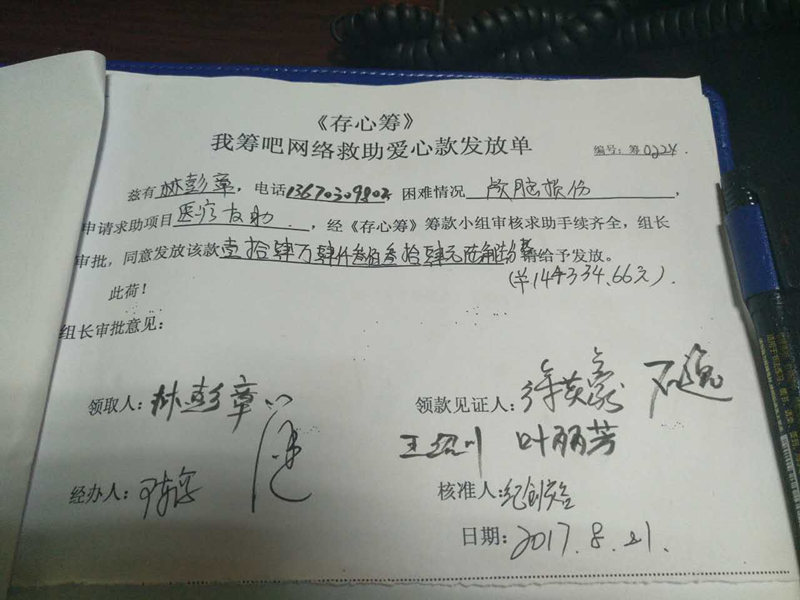 《存心筹》
我筹吧网络救助爱心款发放单
编号：筹0224.
兹有林彭章，电话13670309802 困难情况 颅脑损伤，
申请求助项目医疗友助，经《存心筹》筹款小组审核求助手续齐全，组长
审批，同意发放该款壹拾肆万肆仟叁佰叁拾肆元陆角陆分请给予发放。
(￥144334.66元).
此荷！
组长审批意见：
领取人：林彭章
领款见证人：徐英豪
叶丽芳
经办人：
核准人：
日期：2017.8.21.